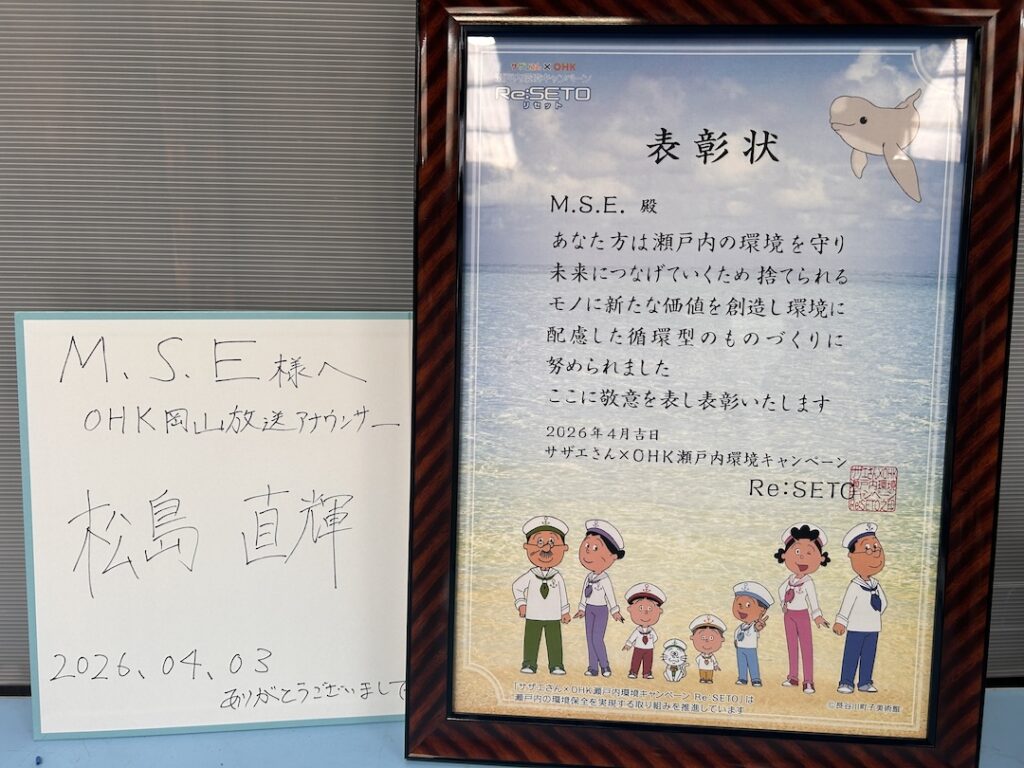 M.S.E様へ
OHK岡山放送アナウンサー
松島 直輝
2026.04.03
ありがとうございまして
サザエさん×OHK
瀬戸内環境キャンペーン
Re:SETO
リセット
表彰状
M.S.E. 殿
あなた方は瀬戸内の環境を守り
未来につなげていくため 捨てられる
モノに新たな価値を創造し環境に
配慮した循環型のものづくりに
努められました
ここに敬意を表し表彰いたします
2026年4月吉日
サザエさん×OHK瀬戸内環境キャンペーン
Re:SETO
サザエさん×OHK
瀬戸内環境
Re:SETO之印
「サザエさん×OHK瀬戸内環境キャンペーン Re:SETO」は
瀬戸内の環境保全を実現する取り組みを推進しています
©長谷川町子美術館